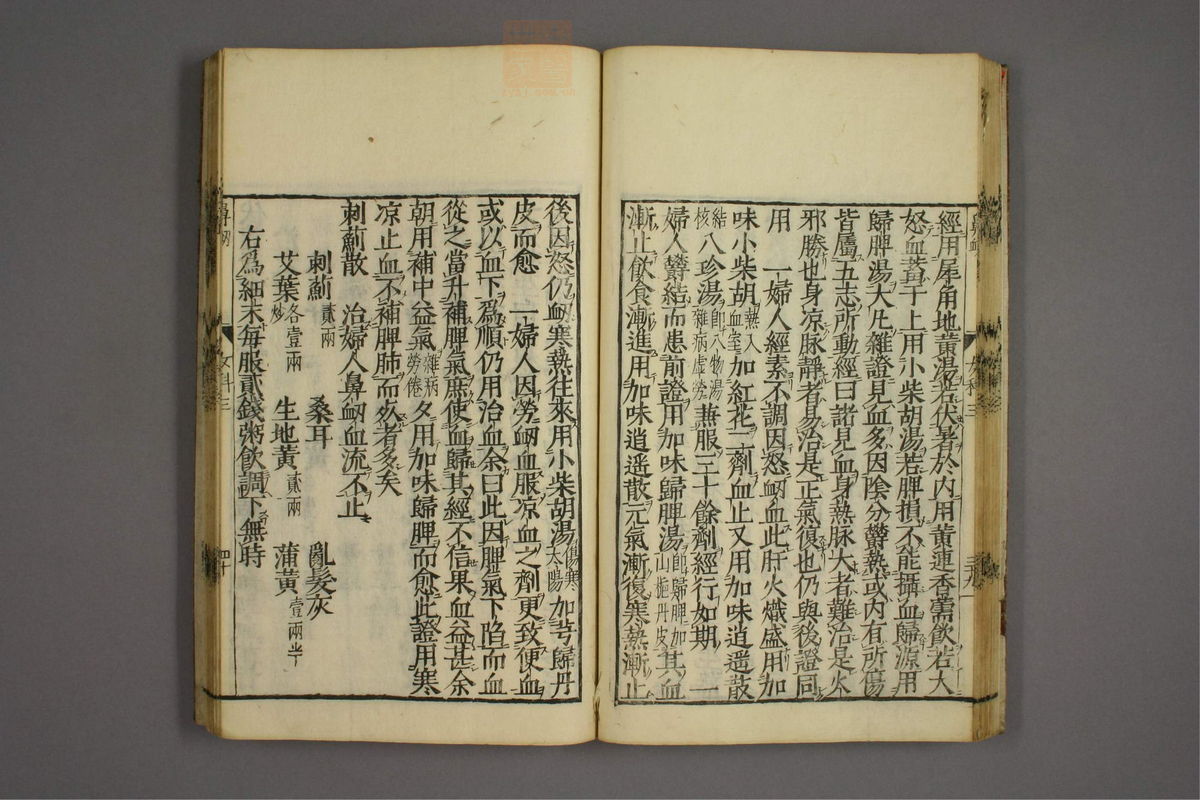 經用犀角地黃湯若伏暑於內用黃連香薷飲若大
怒血菀于上用小柴胡湯若脾損不能攝血歸源用
歸脾湯大凡雜證見血多因陰分鬱熱或內有所傷
皆屬五志所動經曰諸見血身熱脉大者難治是火
邪勝也身凉脉靜者易治是正氣復也仍與後證同
用 一婦人經素不調因怒衄血此肝火熾盛用加
味小柴胡熱入血室加紅花二劑血止又用加味逍遥散
結核八珍湯即八物湯雜病虛勞兼服三十餘劑經行如期 一
婦人欝結而患前證用加味歸脾湯即歸脾加山梔丹皮其血
漸止飲食漸進用加味逍遥散元氣漸復寒熱漸止
後因怒仍衄寒熱往來用小柴胡湯傷寒太陽加芎歸丹
皮而愈 一婦人因勞衄血服凉血之劑更致便血
或以血下爲順仍用治血余曰此因脾氣下陷而血
從之當升補脾氣庶使血歸其經不信果血益甚余
朝用補中益氣雜病勞倦夕用加味歸脾而愈此證用寒
凉止血不補脾肺而死者多矣
刺薊散 治婦人鼻衄血流不止
刺薊貳兩 桑耳 亂髮灰
艾葉炒各壹兩 生地黃貳兩 蒲黃壹兩半
右爲細末每服貳錢粥飲調下無時
鼻衄 女科三 四十